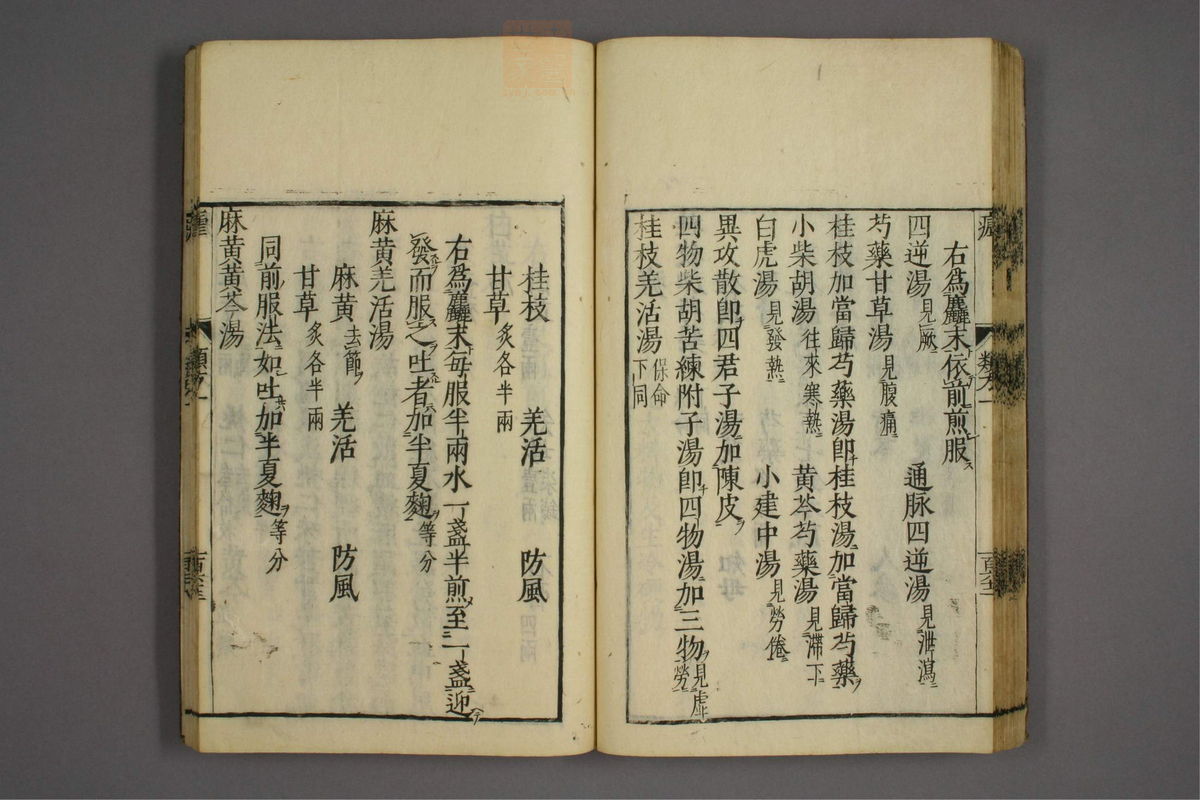 右爲麤末依前煎服ス
四逆湯見厥ニ 通脉四逆湯見泄瀉ニ
芍藥甘草湯見腹痛ニ
桂枝加當歸芍藥湯卽チ桂枝湯ニ加當歸芍藥ヲ
小柴胡湯往來寒熱ニ 黄芩芍藥湯見滯下ニ
白虎湯見發熱ニ 小建中湯見勞倦ニ
異攻散卽チ四君子湯ニ加陳皮ヲ
四物柴胡苦練附子湯卽チ四物湯ニ加三物ヲ見虛勞ニ
桂枝羌活湯保命下同
瘧 類方一
桂枝 羌活 防風
甘草炙各半兩
右爲麤末毎服半兩水一盞半煎至一盞迎
發而服之吐者加半夏麴ヲ等分
麻黄羌活湯
麻黄去節ヲ 羌活 防風
甘草炙各半兩
同前服法如吐加半夏麴ヲ等分
麻黄黄芩湯
瘧 類方一